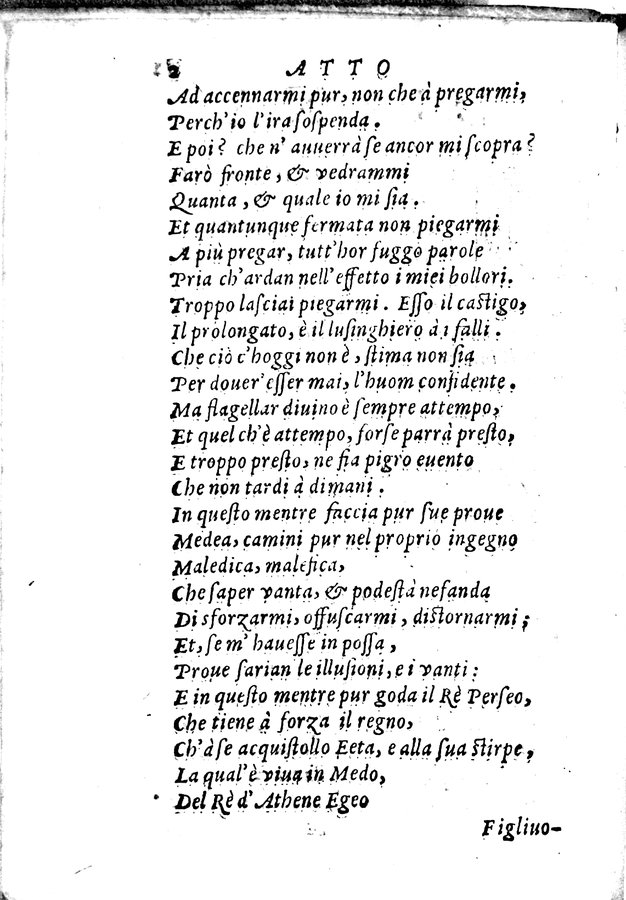 ATTO
Ad accennarmi pur, non che à pregarmi,
Perch'io l'ira ſoſpenda.
E poi? che n'auuerrà ſe ancor mi ſcopra?
Farò fronte, & vedrammi
Quanta, & quale io mi ſia.
Et quantunque fermata non piegarmi
A più pregar, tutt'hor fuggo parole
Pria ch'ardan nell'effetto i miei bollori.
Troppo laſciai piegarmi. Eſſo il caſtigo,
Il prolongato, è il luſinghiero à i falli.
Che ciò c'hoggi non è, ſtima non ſia
Per douer'eſſer mai, l'huom confidente.
Ma flagellar diuino è ſempre attempo,
Et quel ch'è attempo, forſe parrà preſto,
E troppo preſto, ne fia pigro euento
Che non tardi à dimani.
In queſto mentre faccia pur ſue proue
Medea, camini pur nel proprio ingegno
Maledica, malefica,
Che ſaper vanta, & podeſtà nefanda
Di sforzarmi, offuſcarmi, diſtornarmi;
Et, ſe m'haueſſe in poſſa,
Proue ſarian le illuſioni, e i vanti:
E in queſto mentre pur goda il Rè Perſeo,
Che tiene à forza il regno,
Ch'à ſe acquiſtollo Eeta, e alla ſua ſtirpe,
La qual'è viua in Medo,
Del Rè d'Athene Egeo
Figliuo-